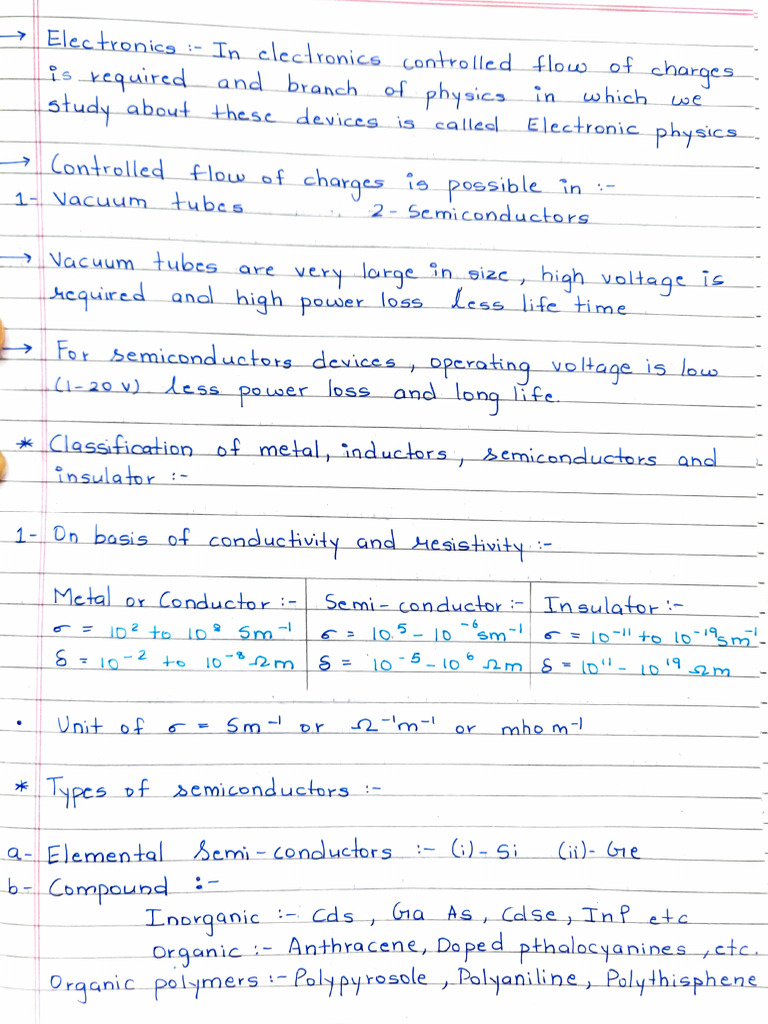 → Electronics :- In electronics controlled flow of charges
is required and branch of physics in which we
study about these devices is called Electronic physics
→ Controlled flow of charges is possible in :-
1- Vacuum tubes 2- Semiconductors
→ Vacuum tubes are very large in size, high voltage is
required and high power loss less life time
→ For semiconductors devices, operating voltage is low
(1-20 V) less power loss and long life.
* Classification of metal, inductors, semiconductors and
insulator :-
1- On basis of conductivity and resistivity :-
Metal or Conductor :- Semi-conductor :- Insulator :-
σ = 10² to 10⁸ Sm⁻¹ σ = 10⁵ - 10⁻⁶ Sm⁻¹ σ = 10⁻¹¹ to 10⁻¹⁹ Sm⁻¹
δ = 10⁻² to 10⁻⁸ Ωm δ = 10⁻⁵ - 10⁶ Ωm δ = 10¹¹ - 10¹⁹ Ωm
• Unit of σ = Sm⁻¹ or Ω⁻¹m⁻¹ or mho m⁻¹
* Types of semiconductors :-
a- Elemental Semi-conductors :- (i)- Si (ii)- Ge
b- Compound :-
Inorganic :- Cds, Ga As, Cdse, InP etc
Organic :- Anthracene, Doped pthalocyanines, etc.
Organic polymers :- Polypyrosole, Polyaniline, Polythisphene